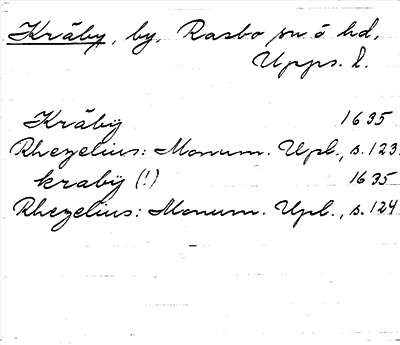 Kråby, by, Rasbo sn o hd,
Upps. l.
Kråbÿ 1635
Rhezelius: Monum. Upl., s. 123
krabÿ (!) 1635
Rhezelius: Monum. Upl., s. 124